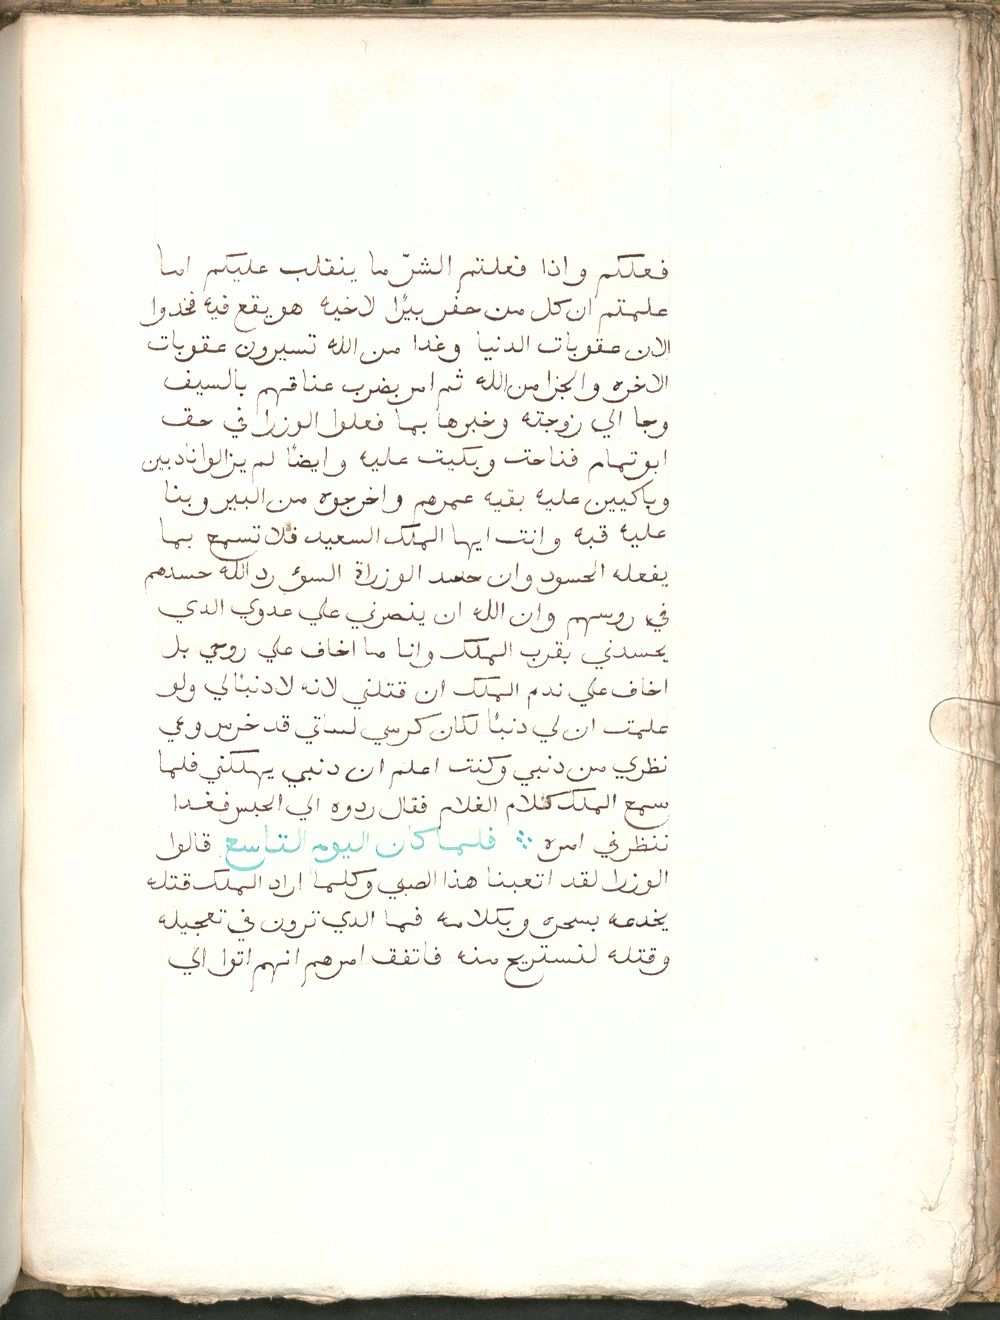 فعلكم واذا فعلتم الشرّ ما ينقلب عليكم اما
علمتم ان كل من حفر بيرًا لاخيه هو يقع فيه فخدوا
الان عقوبات الدنيا وغدا من الله تسيرون عقوبات
الاخره والجزا من الله ثم امر بضرب عناقهم بالسيف
وجا الي زوجته وخبرها بما فعلوا الوزرا في حق
ابو تمام فناحت وبكيت عليه وايضًا لم يزالوا نادبين
وباكيين عليه بقيه عمرهم واخرجوه من البير وبنا
عليه قبه وانت ايها الملك السعيد فلا تسمع بما
يفعله الحسود وان حسد الوزراة السؤ رد الله حسدهم
في روسهم وان الله ان ينصرني علي عدوي الدي
يحسدني بقرب الملك وانا ما اخاف علي روحي بل
اخاف علي ندم الملك ان قتلني لانه لا دنبًا لي ولو
علمت ان لي دنبًا لكان كرسي لساتي قد خرس وعمي
نظري من دنبي وكنت اعلم ان دنبي يهلكني فلما
سمع الملك كلام الغلام فقال ردوه الي الحبس فغدا
ننظر في امره ⁘ فلما كان اليوم التاسع قالوا
الوزرا لقد اتعبنا هذا الصبي وكلما اراد الملك قتله
يخدعه بسحره وبكلامه فما الدي ترون في تعجيله
وقتله لنستريح منه فاتفق امرهم انهم اتوا الي